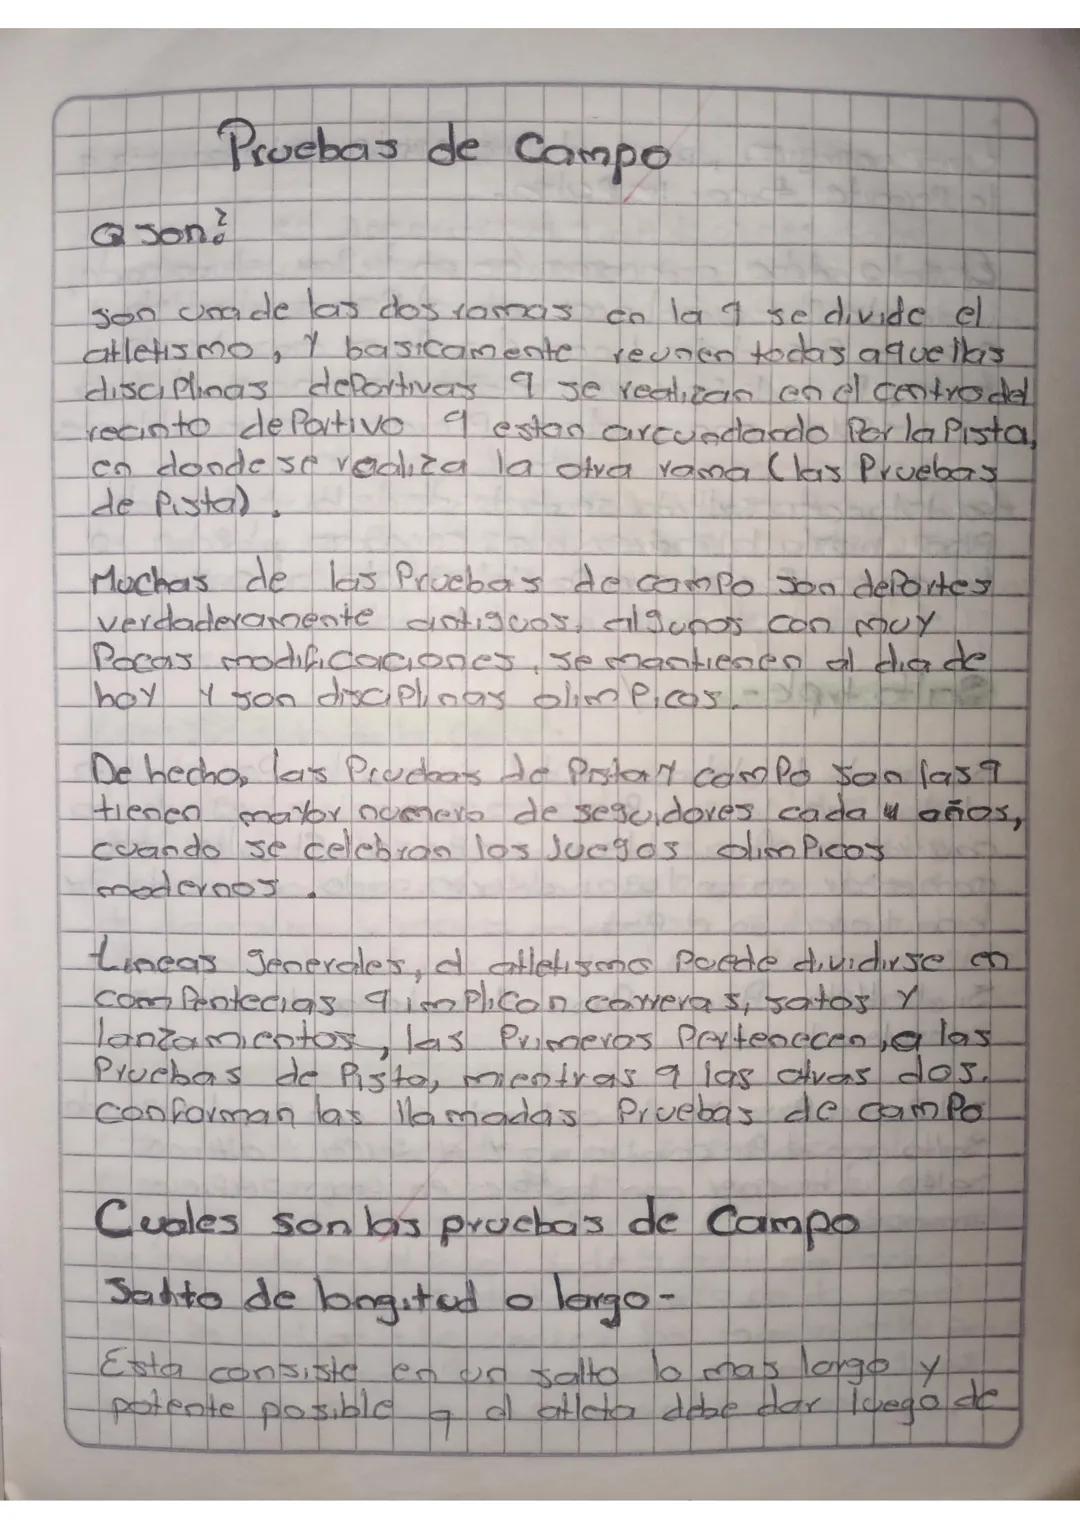 Pruebas de Campo
Q son?
son una de las dos ramas en la q se divide el
atletismo, y basicamente reunen todas aquellas
disciplinas deportivas q se realizan en el centro del
recinto deportivo q estan circundando por la pista,
en donde se realiza la otra rama (las Pruebas
de Pista).
Muchas de las Pruebas de campo son deportes
verdaderamente antiguos, algunos con muy
Pocas modificaciones, se mantienen al dia de
hoy y son disciplinas olimpicas.
De hecho, las Pruebas de Pista y campo son las q
tienen mayor numero de seguidores cada 4 años,
cuando se celebran los Juegos olimpicos
modernos.
Lineas generales, el atletismo puede dividirse en
competecias q implican carreras, saltos y
lanzamientos, las Primeras Pertenecen, a las
Pruebas de Pista, mientras q las otras dos.
conforman las llamadas Pruebas de campo
Cuales son las pruebas de Campo
Salto de longitud o largo-
Esta consiste en un salto lo mas largo y
potente posible q el atleta debe dar luego de